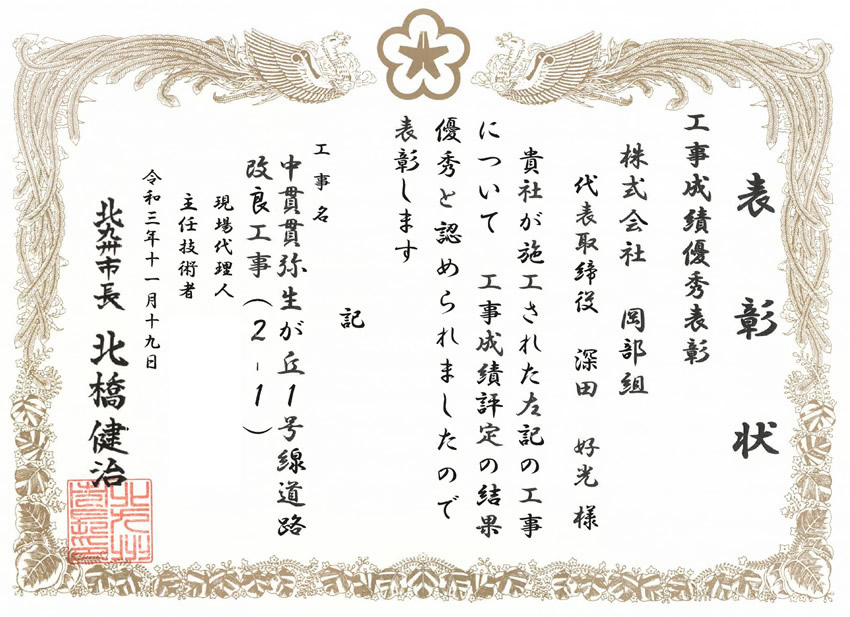 表彰状
工事成績優秀表彰
株式会社 岡部組
代表取締役 深田 好光 様
貴社が施工された左記の工事
について 工事成績評定の結果
優秀と認められましたので
表彰します
記
工事名
中貫貫弥生が丘1号線道路
改良工事(2-1)
現場代理人
主任技術者
令和三年十一月十九日
北九州市長 北橋健治